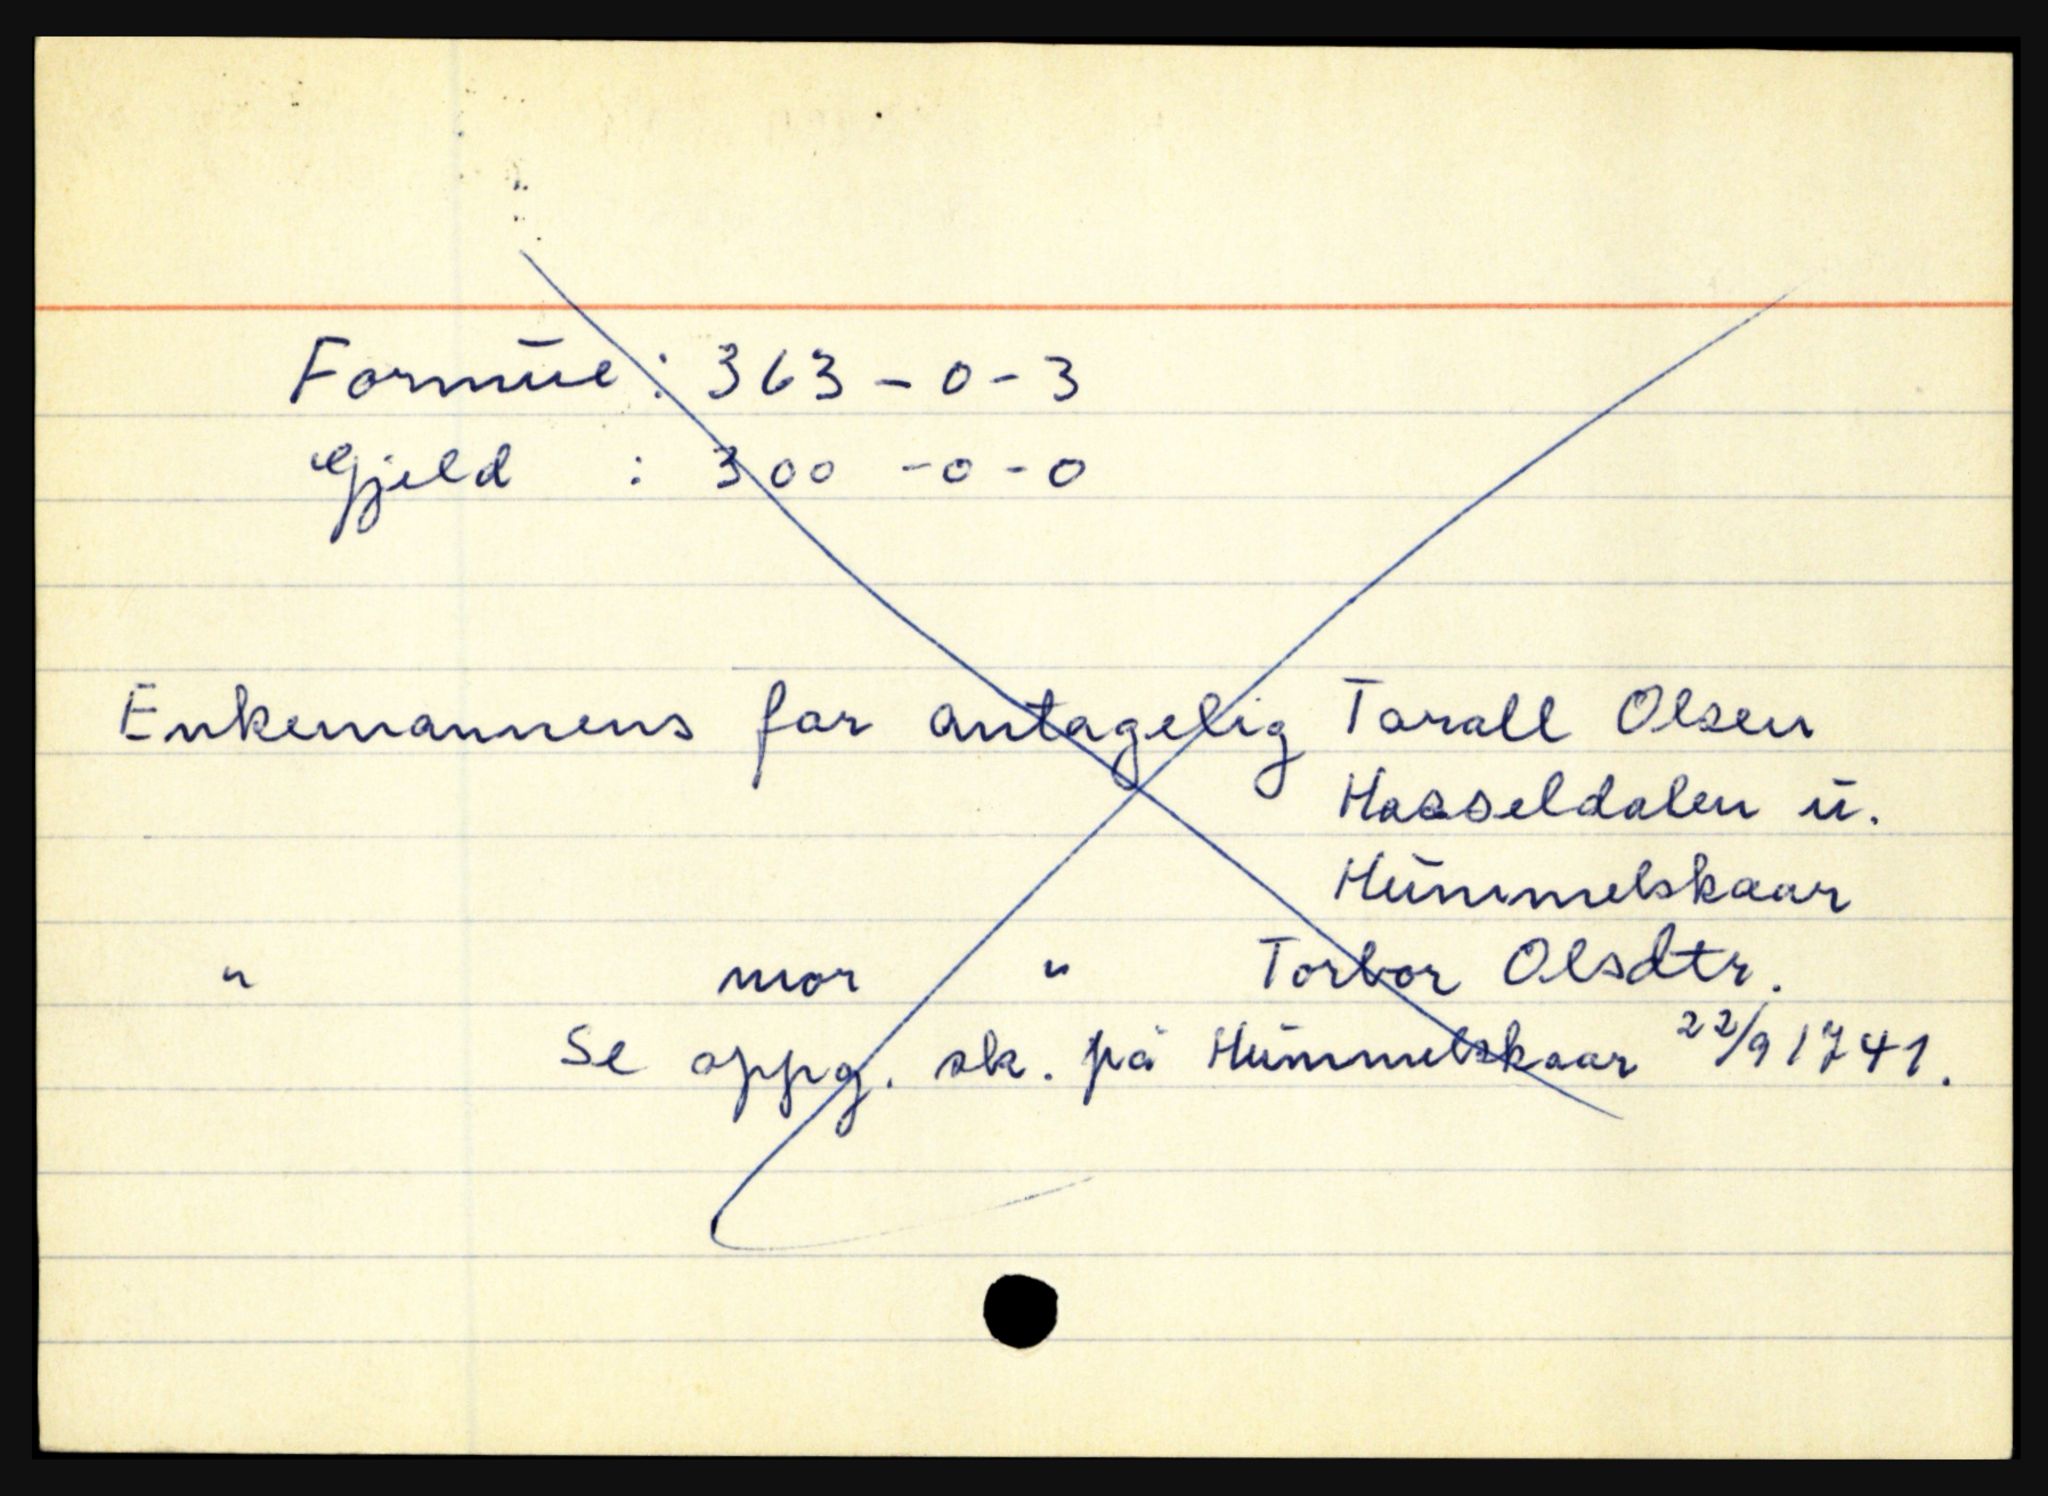 Formue : 363 - 0 - 3
Gjeld : 300 - 0 - 0
Enkemannens far antagelig Tarall Olsen
Hasseldalen u.
Hummelskaar
" mor " Torbor Olsdtr.
Se oppg. sk. på Hummelskaar 22/9 1741.